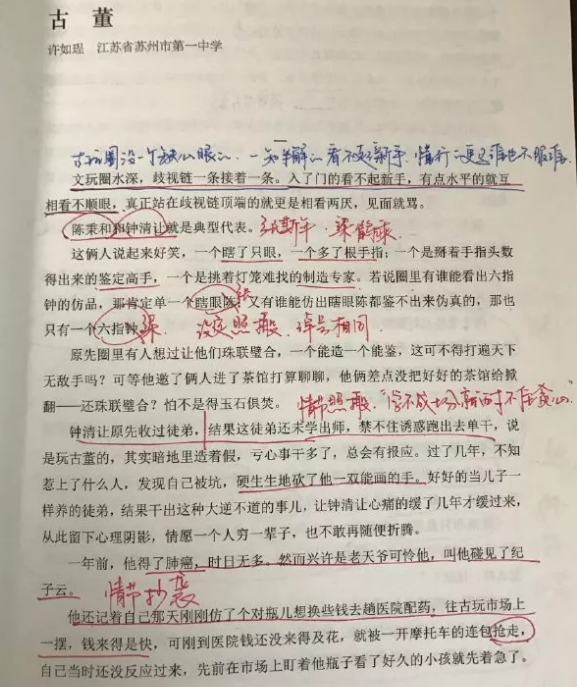 古 董
许如珵 江苏省苏州市第一中学
文玩圈水深，歧视链一条接着一条。入了门的看不起新手，有点水平的就互
相看不顺眼，真正站在歧视链顶端的就更是相看两厌，见面就骂。
陈秉和和钟清让就是典型代表。
这俩人说起来好笑，一个瞎了只眼，一个多了根手指；一个是掰着手指头数
得出来的鉴定高手，一个是挑着灯笼难找的制造专家。若说圈里有谁能看出六指
钟的仿品，那肯定单一个瞎眼陈；又有谁能仿出瞎眼陈都鉴不出来伪真的，那也
只有一个六指钟。
没变照搬 绰号相同
原先圈里有人想过让他们珠联璧合，一个能造一个能鉴，这可不得打遍天下
无敌手吗？可等他邀了俩人进了茶馆打算聊聊，他俩差点没把好好的茶馆给掀
翻——还珠联璧合？怕不是得玉石俱焚。
情节照搬
钟清让原先收过徒弟，结果这徒弟还未学出师，禁不住诱惑跑出去单干，说
是玩古董的，其实暗地里造着假，亏心事干多了，总会有报应。过了几年，不知
惹上了什么人，发现自己被坑，硬生生地砍了他一双能画的手。好好的当儿子一
样养的徒弟，结果干出这种大逆不道的事儿，让钟清让心痛的缓了几年才缓过来，
从此留下心理阴影，情愿一个人穷一辈子，也不敢再随便折腾。
一年前，他得了肺癌，时日无多。然而兴许是老天爷可怜他，叫他碰见了纪
子云。
情节抄袭
他还记着自己那天刚刚仿了个对瓶儿想换些钱去趟医院配药，往古玩市场上
一摆，钱来得是快，可刚到医院钱还没来得及花，就被一开摩托车的连包抢走，
自己当时还没反应过来，先前在市场上盯着他瓶子看了好久的小孩就先着急了。